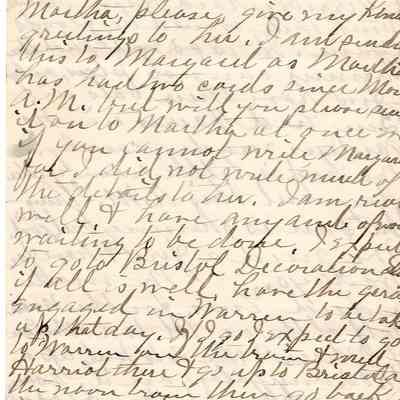 Martha, please give my kind
greetings to her. I am sendi
this to Margaret as Martha
has had two cards since Mon
A.M. but will you please sen
it on to Martha at once
if you cannot write Margar
for I did not write much of
the details to her. I am
well & have any am't of wor
waiting to be done. I expect
to go to Bristol Decoration d
if all is well, have the gera
engaged in Warren to be tak
up that day. If I go I expect to go
to Warren on the train & will
Harriot there & go up to Bristol
the noon train then go back